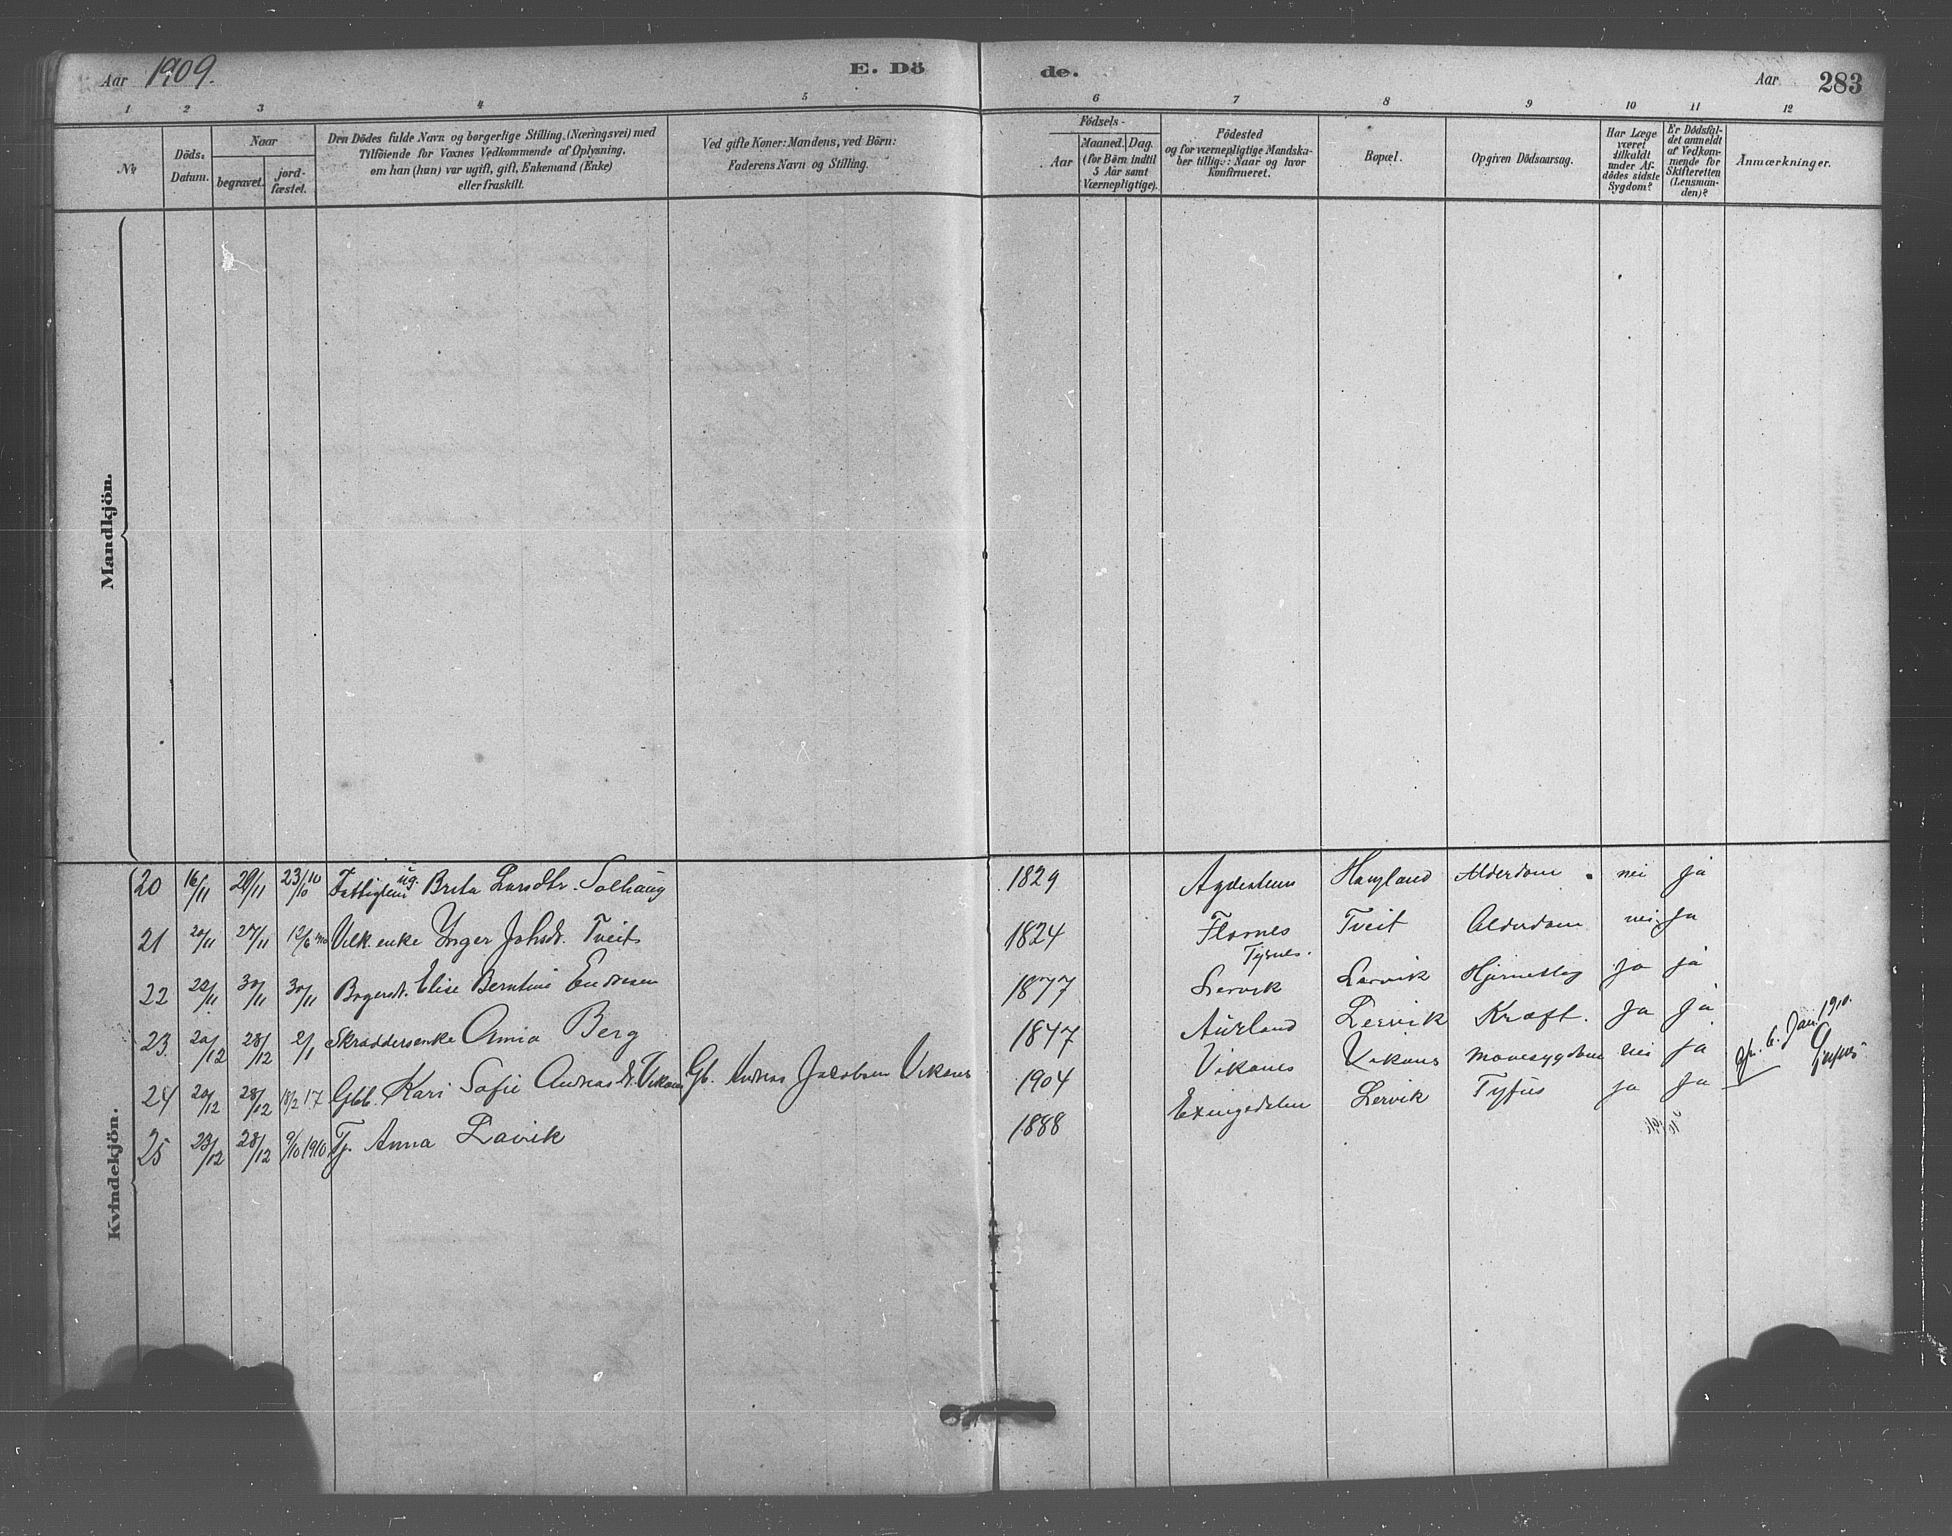 Aar 1909. E. Dö de. Aar 283
1 2 3 4 5 6 7 8 9 10 11 12
Nr.
Döds-
Datum.
Naar
begravet.
jord-
fæstet.
Den Dödes fulde Navn og borgerlige Stilling, (Næringsvei) med
Tilföiende for Voxnes Vedkommende af Oplysning,
om han (hun) var ugift, gift, Enkemand (Enke)
eller fraskilt.
Ved gifte Koner: Mandens, ved Börn:
Faderens Navn og Stilling.
Födsels-
Aar
Maaned. Dag.
(for Börn indtil
5 Aar samt
Værnepligtige).
Födested
og for værnepligtige Mandska-
ber tillig: Naar og hvor
konfirmeret.
Bopæl.
Opgiven Dödsaarsag.
Har Læge
været
tilkaldt
under Af-
dödes sidste
Sygdom?
Er Dödsfal-
det anmeldt
af Vedkom-
mende for
Skifteretten
(Lensman-
den)?
Anmærkninger.
Mandkjön.
Kvindekjön.
20 16/11 20/11 23/10 10 Fattiglem ug. Brita Larsdtr. Solhaug 1829 Haugland Alderdom nei ja
21 20/11 27/11 12/6 1910 Vilk. enke Inger Johsdt. Tveit 1824 Flornes Tysnes. Tveit Alderdom nei ja
22 22/11 30/11 30/11 Elise Berntine Endresen 1877 Lervik Lervik Hjerneslag ja ja
23. 20/12 28/12 2/1 Skræddersenke Anna Berg 1847 Aurland Lervik Kræft. ja ja
24 20/12 28/12 18/2 17 Gbb. Kari Sofie Andreasdt. Vikanes Gb. Andreas Jacobsen Vikanes 1904 Vikanes Vikanes Mavesygdom nei ja 6. Jan. 1910.
25 23/12 28/12 9/10 1910. Tj. Anna Lavik 1888 Exingedalen Lervik Tyfus ja ja